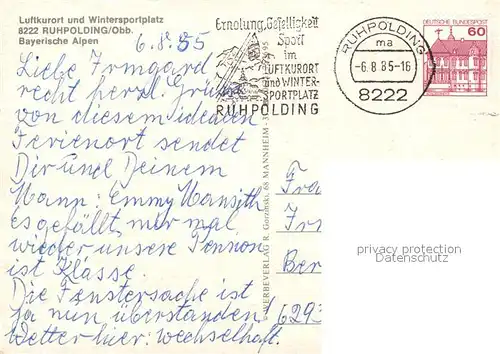 Luftkurort und Wintersportplatz
8222 RUHPOLDING/Obb.
Bayerische Alpen
6.8.85
Liebe Irmgard
recht herzl. Grüße
von diesem idealen
Ferienort sendet
Dir und Deinem
Mann: Emmy
Es gefällt mir mal
wieder unsere Pension
ist Klasse.
Die Fenstersache ist
ja nun überstanden!
Wetter hier: wechselhaft.
Erholung, Geselligkeit
Sport
im
LUFTKURORT
und WINTER-
SPORTPLATZ
RUHPOLDING
RUHPOLDING
ma
-6.8.85-16
8222
DEUTSCHE BUNDESPOST
60
WERBEVERLAG R. Gorzinski, 68 MANNHEIM
Fra
Ber
6293
privacy protection
Datenschutz